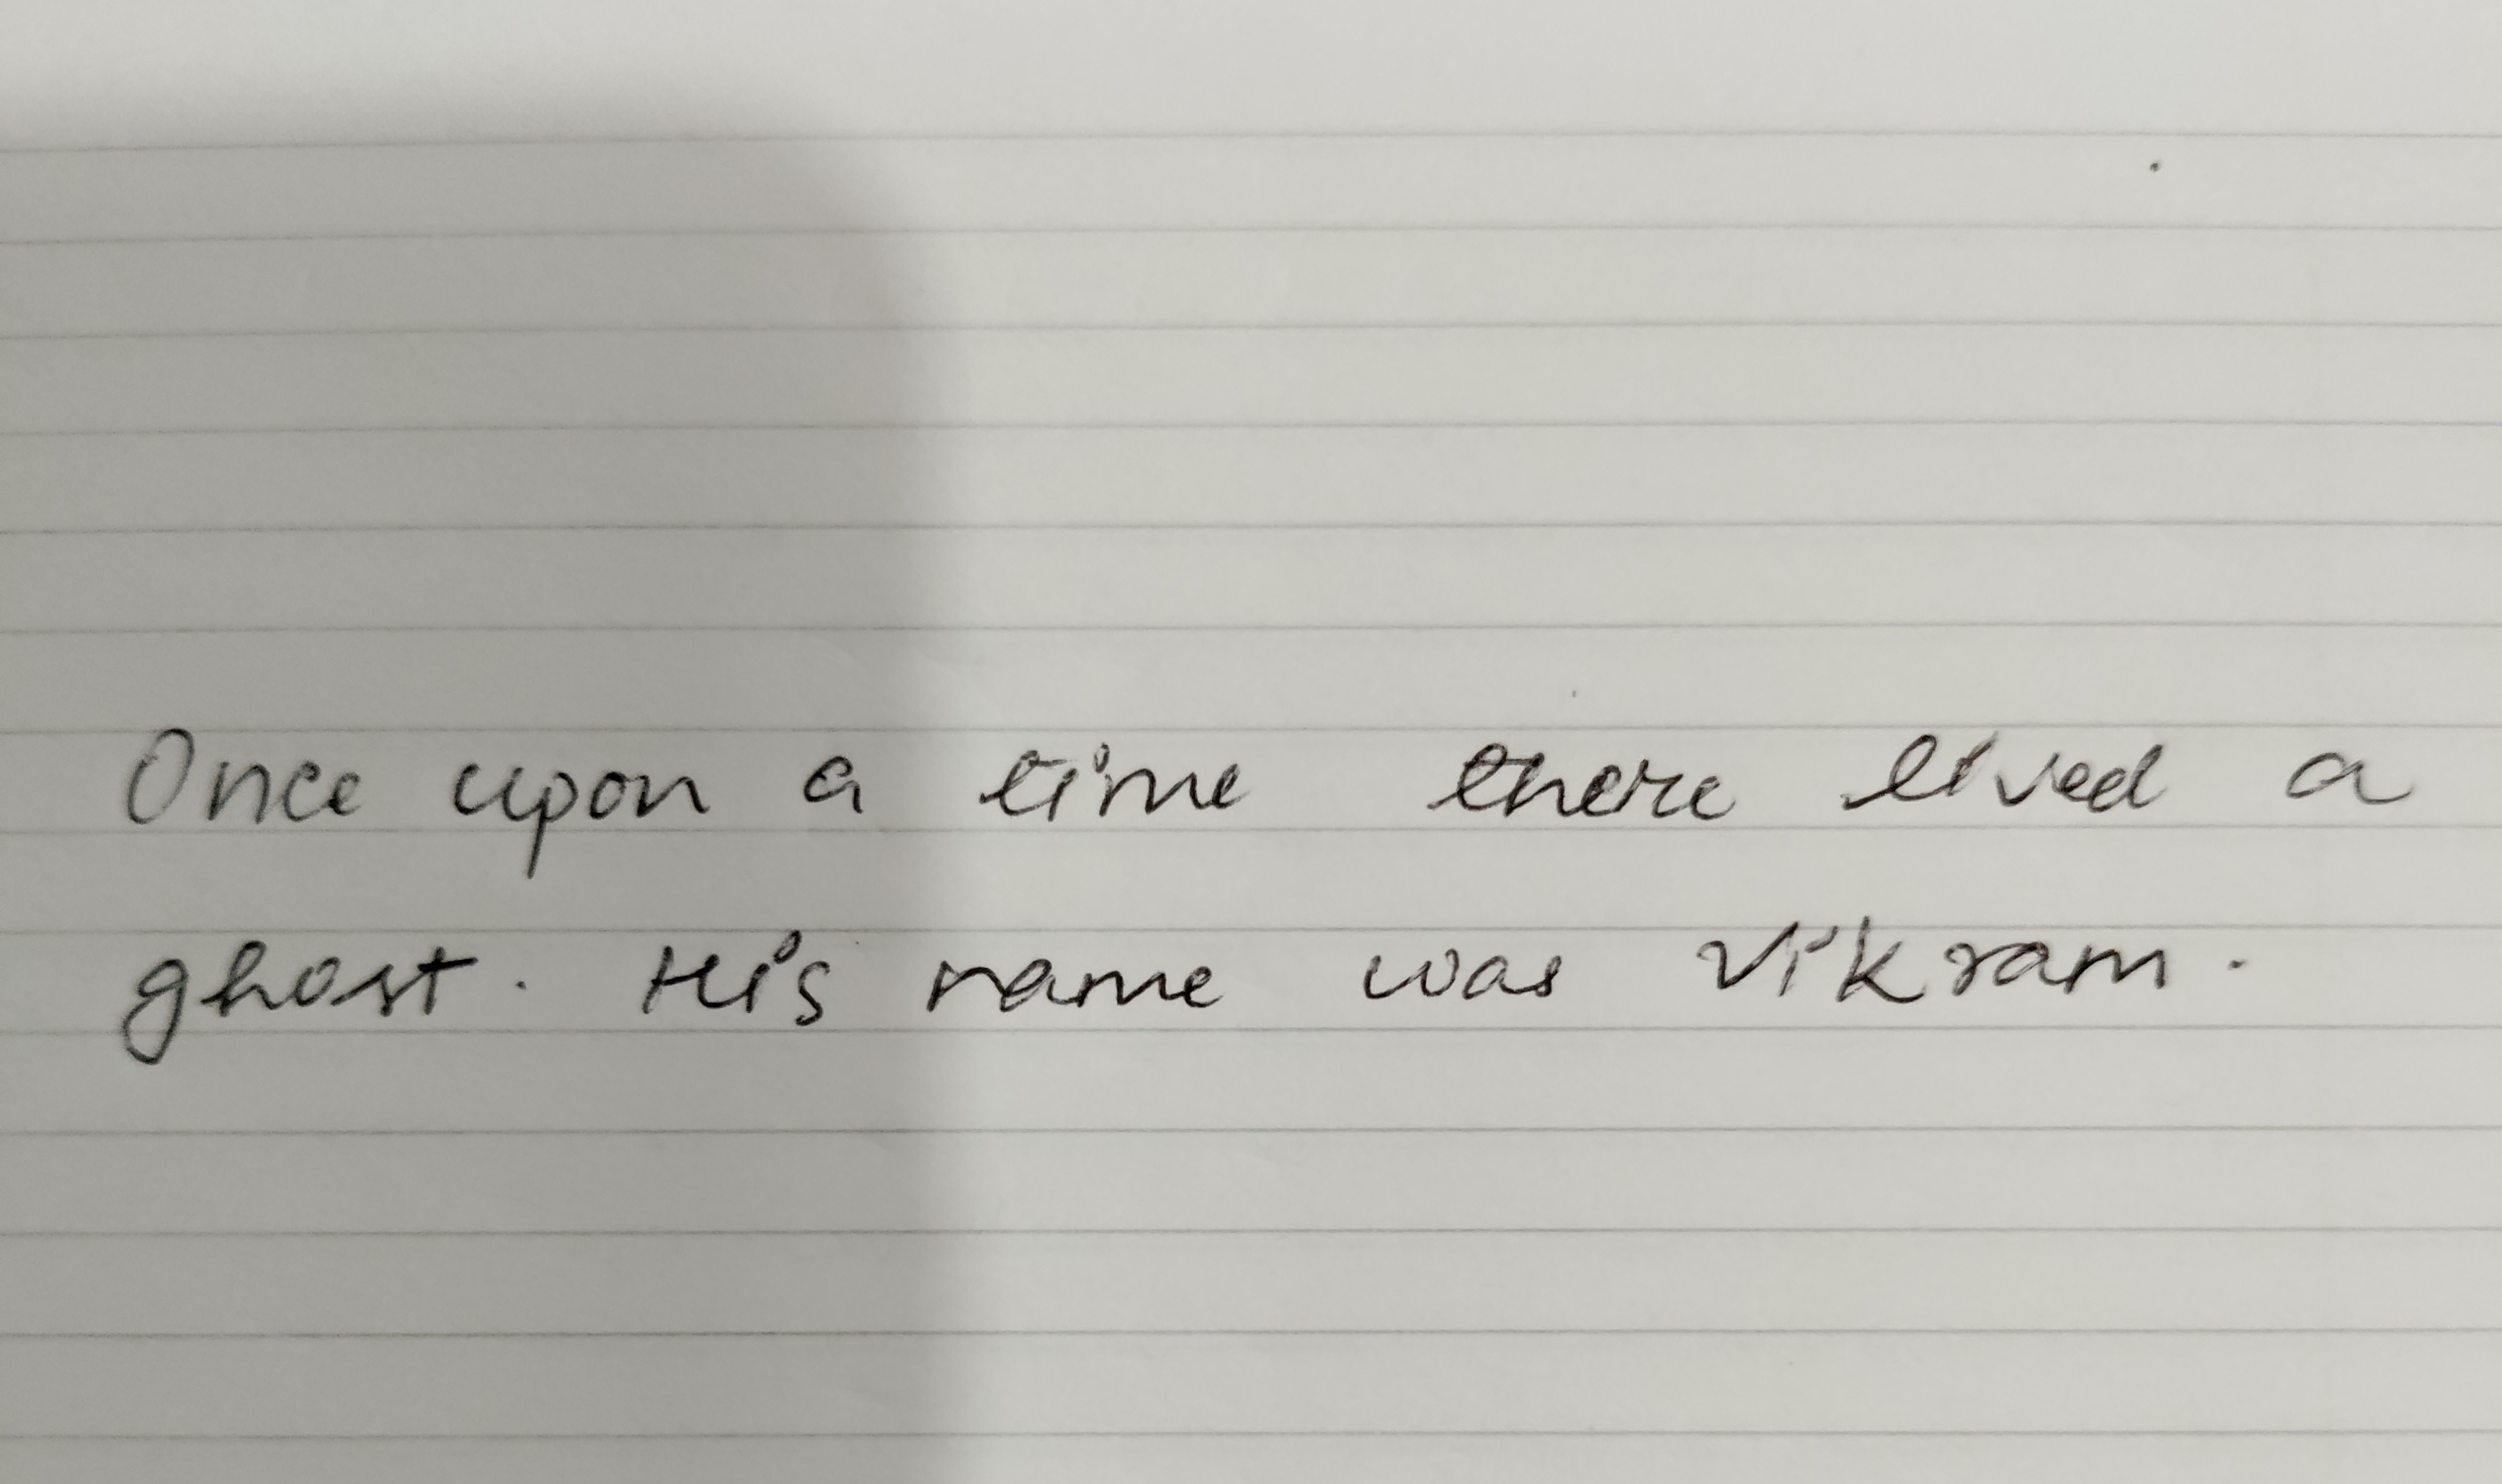 Once upon a time there lived a
ghost. His name was Vikram.